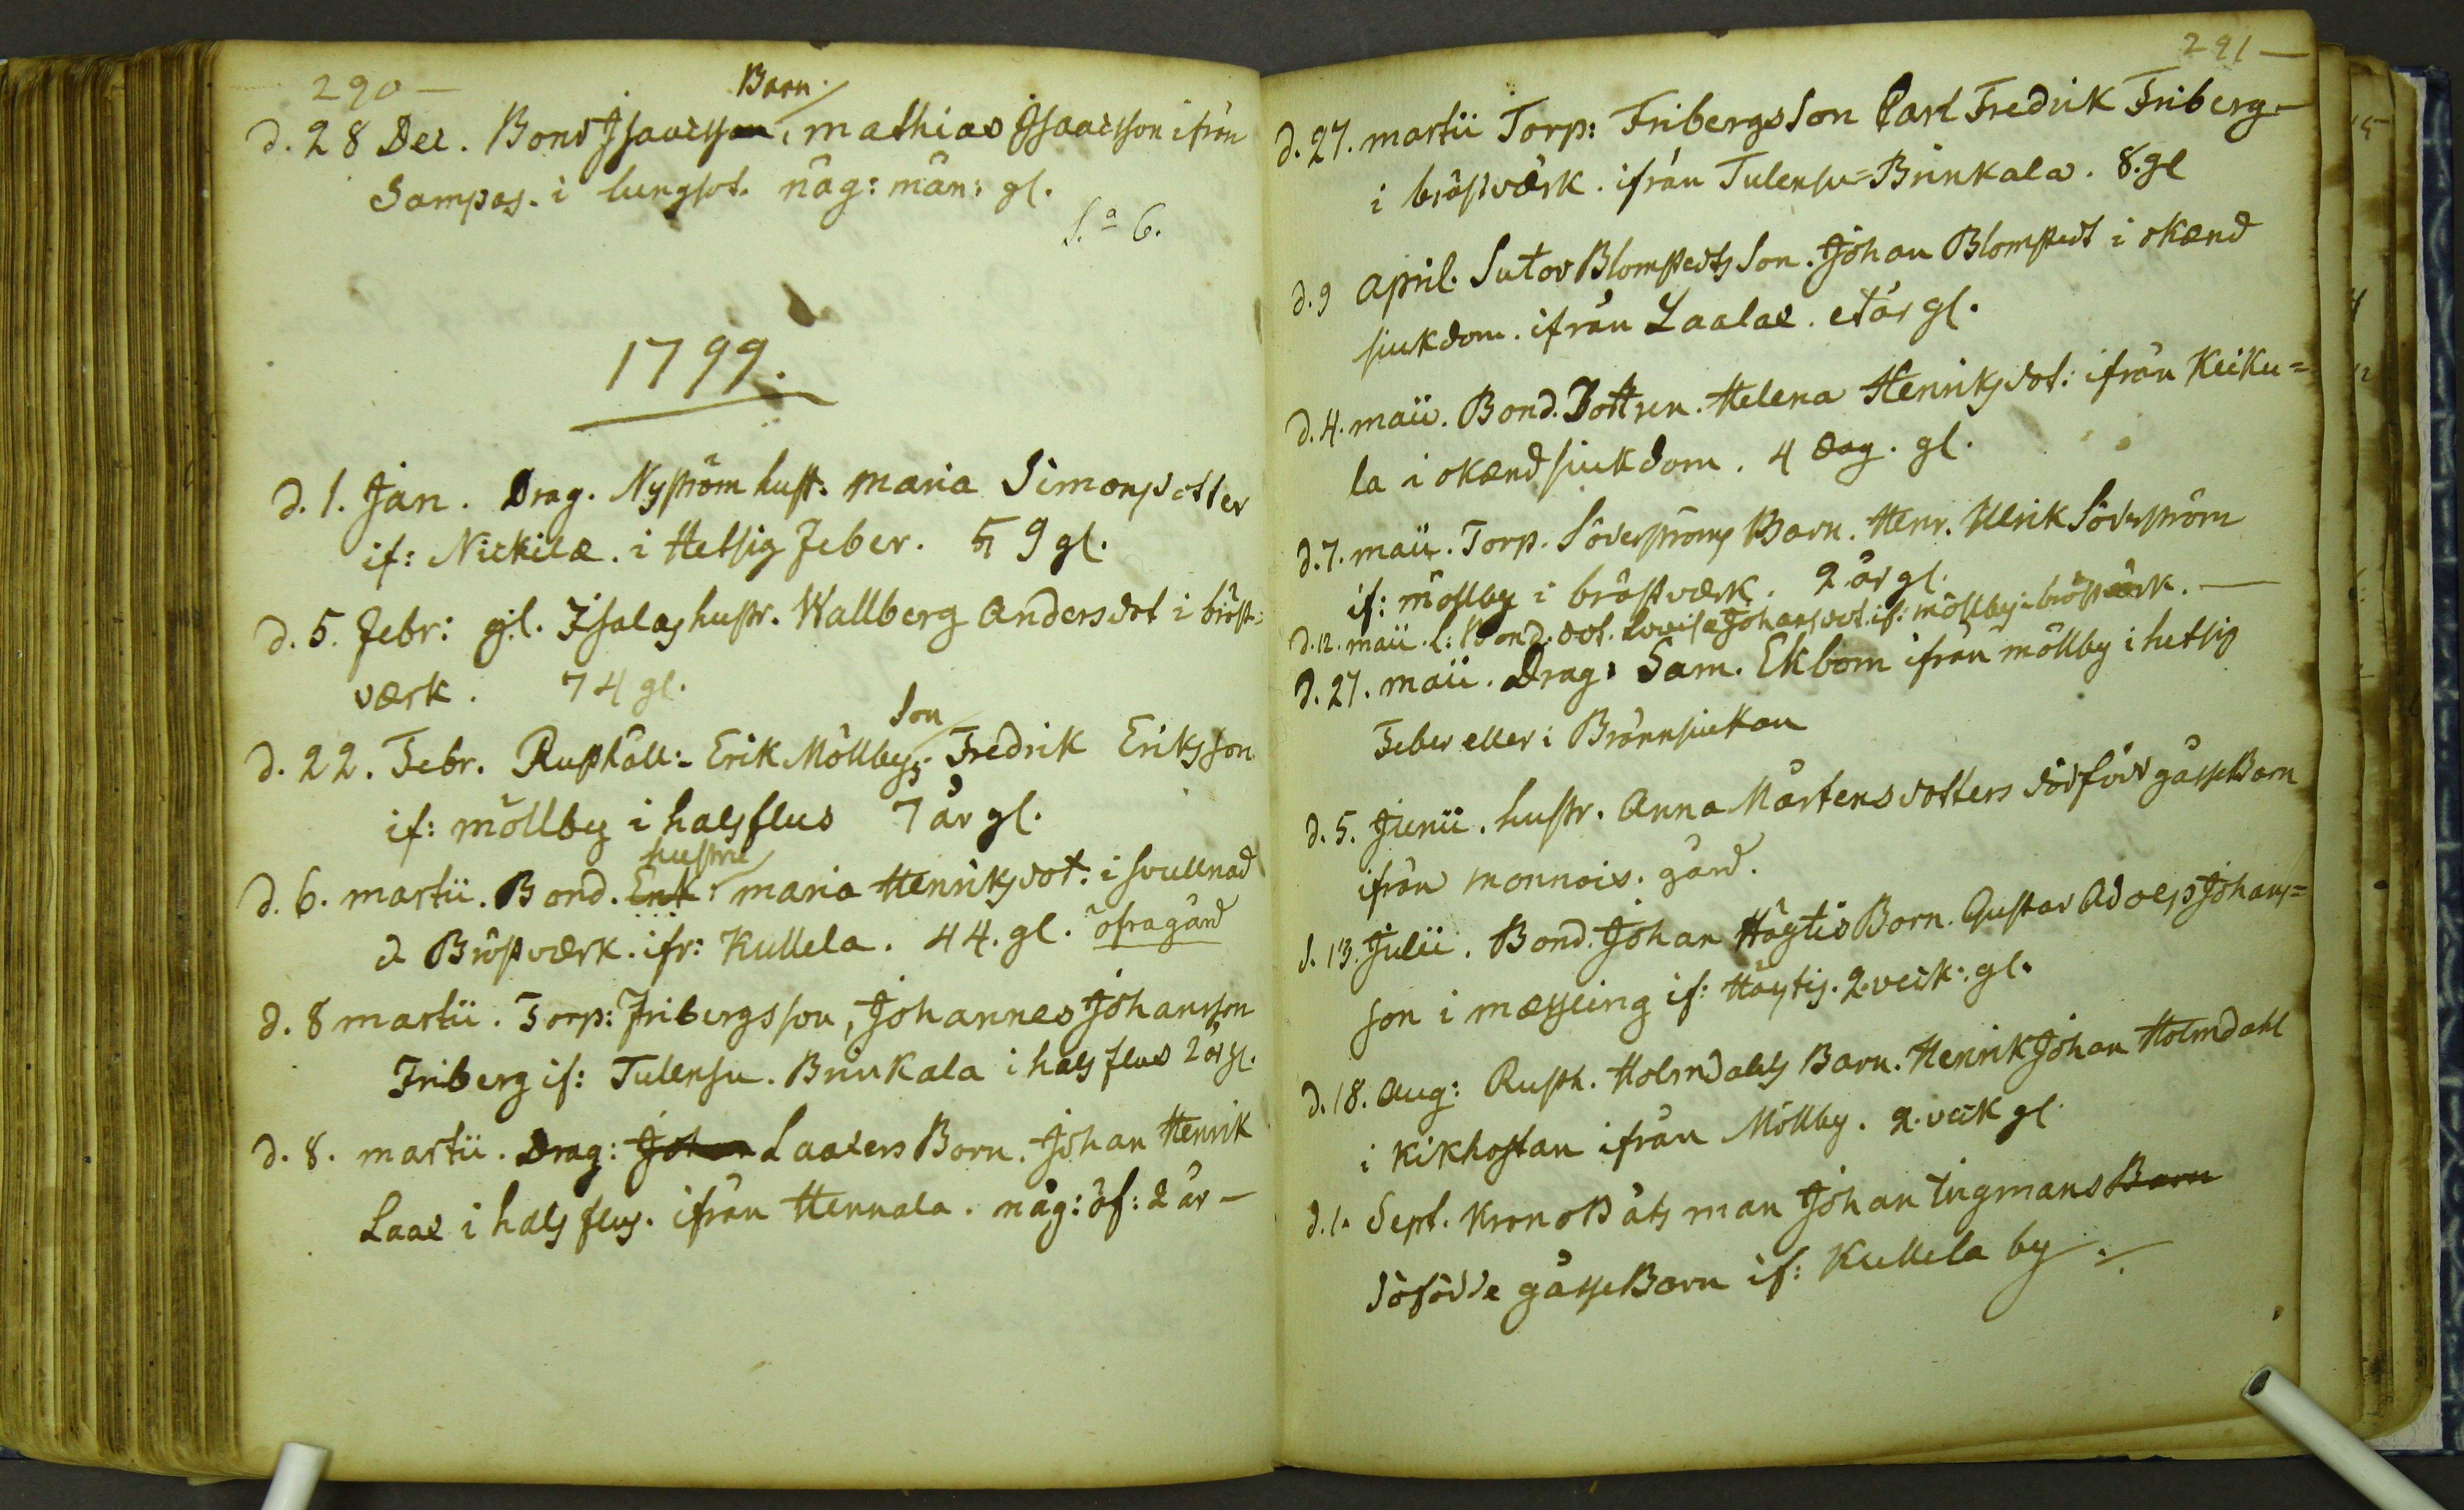 290 –
Barn
d. 28 Dec. Bond Jsaacsson, mathias Jsaacsson ifrån
Sampas. i lungsot. någ: mån: gl.
S:a 6.
1799.
d. 1. Jan. Drag. Nyström hust. Maria Simonsdotter
if: Nickilæ. i Hetsig Feber. 59 gl.
d. 5. Febr: gl. Isalas hustr. Wallberg Andersdot i bröst=
værk. 74 gl.
Son
d. 22. Febr. Rusthåll:- Erik Möllbys. Fredrik Eriksson
if: möllby i halsflus 7 år gl.
hustru
d. 6. martii. Bond. Enk: maria Henriksdot: i svullnad
& Bröstværk. ifr: Kullela. 44. gl. öfragård
d. 8 martii. Torp: Fribergs son, Johannes Johansson
Friberg if: Tulensu. Brinkala i halsflus 2 år gl.
d. 8. martii. Drag: Johan Laalers Barn. Johan Henrik
Laal i halsflus. ifrån Hennala. någ: öf: 2 år –
291 –
d. 27. martii Torp: Fribergs Son Carl Fredrik Friberg –
i bröstværk. ifrån Tulensu=Brinkala. 8. gl
d. 9 april. Sutor Blomstedts Son. Johan Blomstedt i okænd
siukdom. ifrån Laalas. et år gl.
d. 4. maii. Bond. Dottren. Helena Henriksdot: ifrån Keiku=
la i okændsiukdom. 4 dag. gl.
d. 7. maii. Torp. Söderströms Barn. Henr. Ulrik Söderström
if: möllby i bröstværk. 2 år gl.
d. 12. maii. l: Bond. dot. Lovisa Johansdot. if: möllby i bröstværk. –
d. 27. maii. Drag: Sam. Ekbom ifrån möllby i hetsig
Feber eller i Brännsiukan
d. 5. Junii. hustr. Anna Mårtensdotters dödföd gåsseBarn
ifrån monnois. gård.
d. 13. Julii. Bond. Johan Höytis Barn. Gustav Adolfs Johans=
son i mæssling if: Höytis. 2. veck. gl.
d. 18. Aug: Rusth. Holmdahls Barn. Henrik Johan Holmdahl
i Kikhostan ifrån Möllby. 2. veck gl
d. 1. Sept. KronoBåtsman Johan Tingmans Barn
döfödde gåsseBarn if: Kullela by –